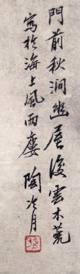 門前秋澗幽屋後雲木荒
寫於海上風雨廔 陶冷月